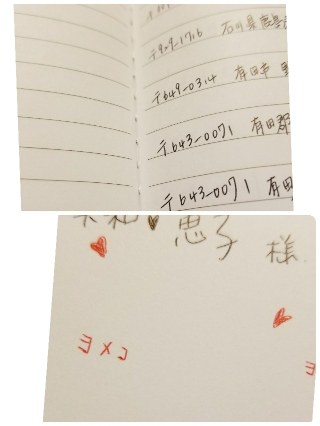 〒929-1716 石川県鹿島
〒649-0314 有田市
〒643-0071 有田郡
〒643-0071 有田
恵子 様
ヨメコ
ヨ